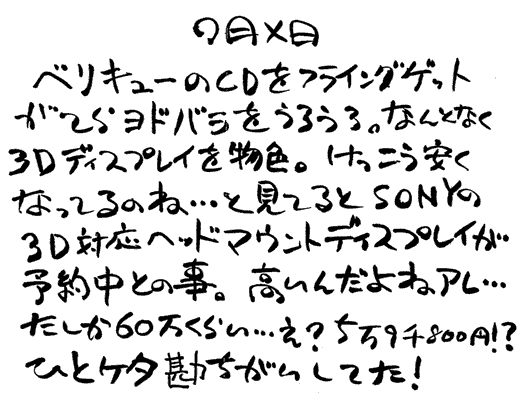 7月×日
ベリキューのCDをフライングゲット
がてらヨドバシをうろうろ。なんとなく
3Dディスプレイを物色。けっこう安く
なってるのね…と見てるとSONYの
3D対応ヘッドマウントディスプレイが
予約中との事。高いんだよねアレ…
たしか60万くらい…え?5万9千800円!?
ひとケタ勘ちがいしてた!